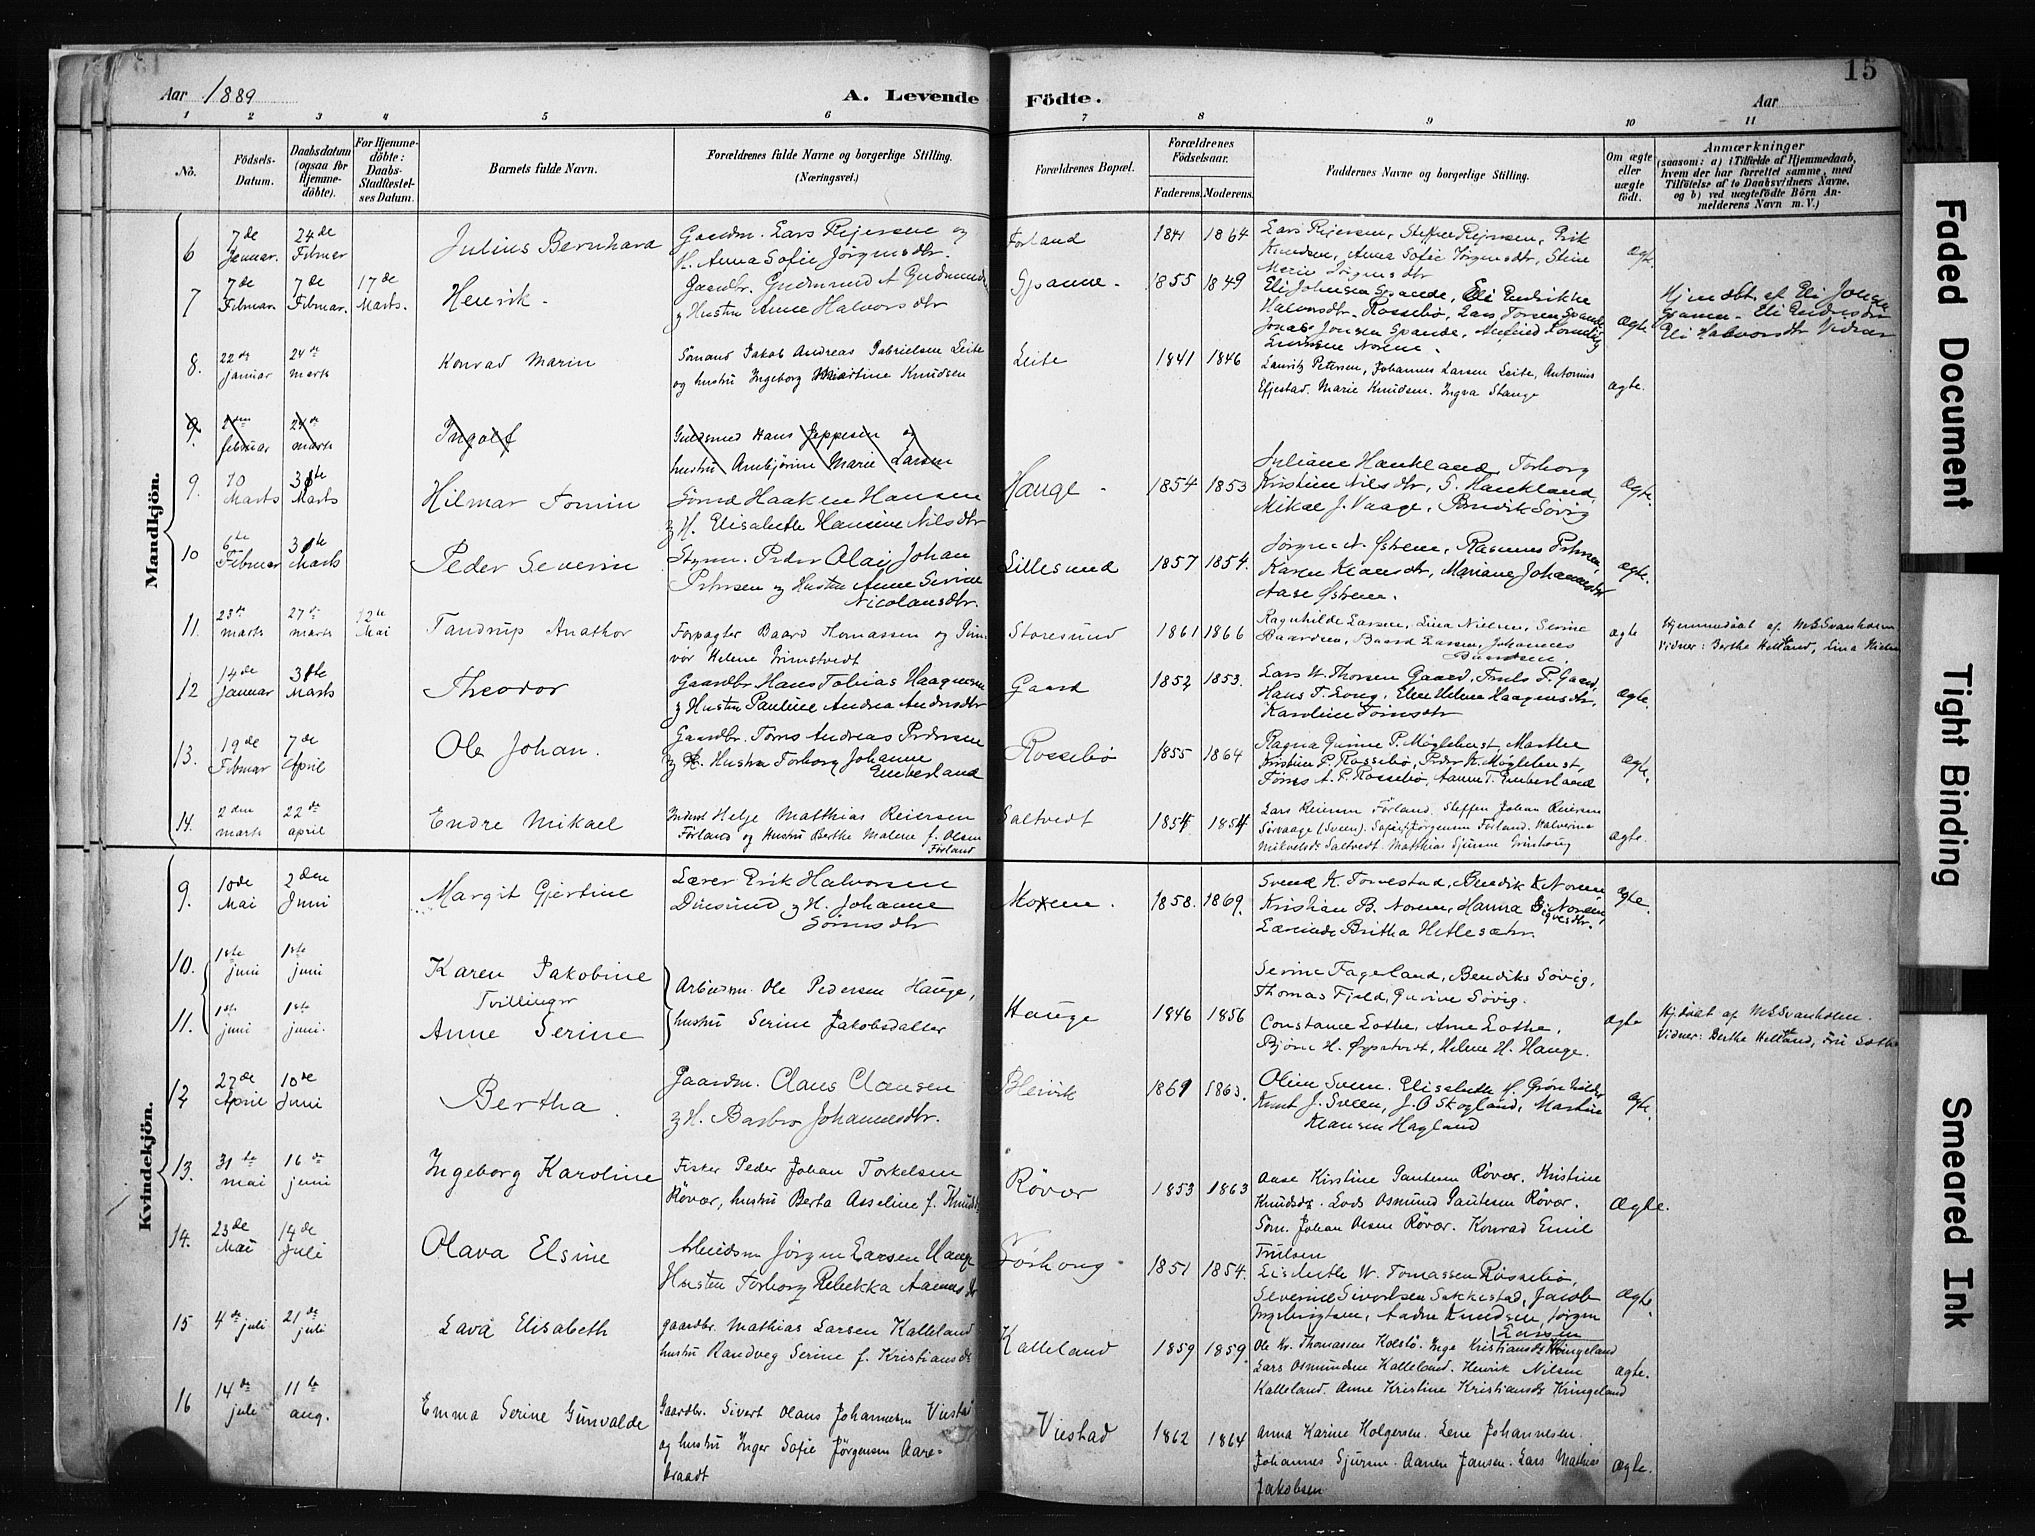 Aar 1889 A. Levende Födte. Aar 15
1 2 3 4 5 6 7 8 9 10 11
No. Födsels-Datum. Daabsdatum (ogsaa for Hjemme-döbte). For Hjemme-döbte: Daabs-Stadfæstel-ses Datum. Barnets fulde Navn. Forældrenes fulde Navne og borgerlige Stilling. (Næringsvei.) Forældrenes Bopæl. Forældrenes Födselsaar. Faderens. Moderens. Faddernes Navne og borgerlige Stilling. Om ægte eller uægte födt. Anmærkninger (saasom: a) i Tilfælde af Hjemmedaab, hvem der har forrettet samme, med Tilföielse af to Daabsvidners Navne, og b) ved uægtefödte Börn An-melderens Navn m. V.)
Mandkjön.
6 7de Januar. 24de Februar Julius Bernhard Gaardm. Lars Reiersen og
H. Anna Sofie Jørgensdtr. Førland 1841 1864 Lars Reiersen, Steffen Reiersen, Erik
Knudsen, Anna Sofie Jørgensdtr, Stine
Marie Jørgensdtr ægte
7 7de Februar. 7de Februar. 17de Marts. Henrik. Gaardbr. Gudmund A Gudmunds.
og Hustru Anne Halvorsdtr Spanne. 1855 1849 Eli Johnsen Spande, Eli Endrikke
Halvorsdtr. Rossebø, Lars Torsen Spande
Jonas Jonsen Spande, ægte
8. 22de januar 24de marts Konrad Marin Sømand Jakob Andreas Gabrielsen Leite
og hustru Ingeborg Martine Knudsen Leite 1841 1846 Lauritz Petersen, Johannes Larsen Leite, Antonius
Efjestad. Marie Knudsen. Ingva Stange ægte.
9. 2den februar 24de marts Ingolf Guldsmed Hans Jeppesen og
hustru Arnbjørine Marie Larsen
9. 10 Marts 31te Marts Hilmar Tomin Sømd Haaken Hansen
og H. Elisabeth Hansine Nilsdtr Hauge. 1854 1853 Juliane Haukland, Torborg
Kristine Nilsdtr, S. Haukland,
Mikal J. Vaage, Bendik Søvig ægte.
10 6te Februar 31te Marts Peder Severin Styrm. Peder Olai Johan
Petersen og Hustru Anne Serine
Nicolausdtr. Lillesund 1857 1854. Jørgen N. Østrem, Rasmus Petersen,
Karen Klausdtr, Mariane Johannesdtr
Aase Østrem. ægte.
11. 23de marts 27de marts 12te Mai Tandrup Anathor Forpagter Baard Thomassen og Gun-
vor Helene Grimstvedt Storesund 1861 1866 Ragnhilde Larsen, Lina Nielsen, Serine
Baardsen, Baard Larsen, Johannes
ægte Hjemmedøbt af MS Svanholm
Vidner: Berthe Hetland, Lina Nielsen
12 14de Januar 31te Marts Theodor Gaardbr Hans Tobias Haagensen
og Hustru Pauline Andrea Andersdtr Gaard 1852 1853. Lars W. Thorsen Gaard, Troels P. Gaard,
Hans T. Long, Elen Helene Haagensdtr,
Karoline Tørresdtr ægte.
13. 19de Februar 7de April Ole Johan. Gaardbr. Tørres Andreas Pedersen
og H. Hustru Torborg Johanne
Emberland Rossebø 1855 1864 Ragna Gurine P. Møglehust, Marthe
Kristine P. Rossebø, Peder K. Møglehust,
Tørres A. P. Rossebø, Aanen T. Emberland ægte.
14. 2den marts 22de april Endre Mikael Inderst Helje Matthias Reiersen
Førland og Hustru Berthe Malene f. Olsen
Førland Saltvedt 1854 1854 Lars Reiersen Førland. Steffen Johan Reiersen
Sørvaage (Sveen). Sofie Jørgensen Førland. Halverine
Mikelsdr Saltvedt. Matthias Sjursen Grinhoug ægte.
Kvindekjön.
9. 10de Mai 2den Juni Margit Gjertine Lærer Erik Halvorsen
Djuesund og H. Johanne
Tørresdtr Norem. 1858. 1869. Svend K. Torvestad, Bendik K Norem,
Kristian B. Norem, Hanna B. Norem,
Lærerinde Britha Hetlesæter. ægte.
10. 1ste juni 1ste juni Karen Jakobine
Tvillinger
11. 1ste juni 1ste juni. Anne Serine Arbeidsm. Ole Pedersen Hauge,
hustru Serine Jakobsdatter Hauge 1846 1856 Serine Fageland, Bendiks Søvig,
Thomas Fjeld, Gurine Søvig.
Constance Lothe, Arne Lothe,
Bjørn H. Øygstvedt, Helene H. Hauge. ægte Hjdøbt af MS Svanholm.
Vidner: Berthe Hetland, Fru Lothe
12 27de April 10de Juni Bertha. Gaardm. Claus Clausen
og H. Barbro Johannesdtr. Bleivik 1861 1863. Olene Sveen. Elisabeth H. Grønhilder
Knut J. Sveen, J. O Skogland, Martin
Klausen Hagland ægte.
13. 31te mai 16de juni Ingeborg Karoline Fisker Peder Johan Torkelsen
Røvær, hustru Berta Asseline f. Knudsd. Røvær 1853 1863 Aase Kirstine Gautesen Røvær. Kristine
Knudsdr. Lods Osmund Gautesen Røvær.
Søm. Johan Olsen Røvær. Konrad Emil
Trulsen Ægte.
14. 23de Mai 14de Juli Olava Elsine Arbeidsm Jørgen Larsen Hauge
Hustru Torborg Rebekka Aanensdr Førhong 1851 1854. Lisabeth W. Tomassen Rossebø,
Severine Sivertsen Sakkestad, Jacob
Ingebrigtsen, Aadne Knudsen, Jørgen
Larsen ægte.
15 4de juli 21de juli Lava Elisabeth gaardbr. Mathias Larsen Kalleland
hustru Randveg Serine f. Kristiansdr Kalleland 1859 1859. Ole Kr. Thomassen Kolstø. Inga Kristiansdr Kringeland
Lars Osmundsen Kalleland. Henrik Nilsen
Kalleland. Anne Kristine Kristiansdr Kringeland ægte.
16 14de juli 11te aug. Emma Serine Gunvalde Gaardbr. Sivert Olaus Johannesen Viestad
og hustru Inger Sofie Jørgensen Aare-
braadt Viestad 1862 1864 Anna Karine Holgersen. Lene Johannesen.
Johannes Sjursen. Aanen Jansen. Lars Mathias
Jakobsen Ægte.
Faded Document
Tight Binding
Smeared Ink